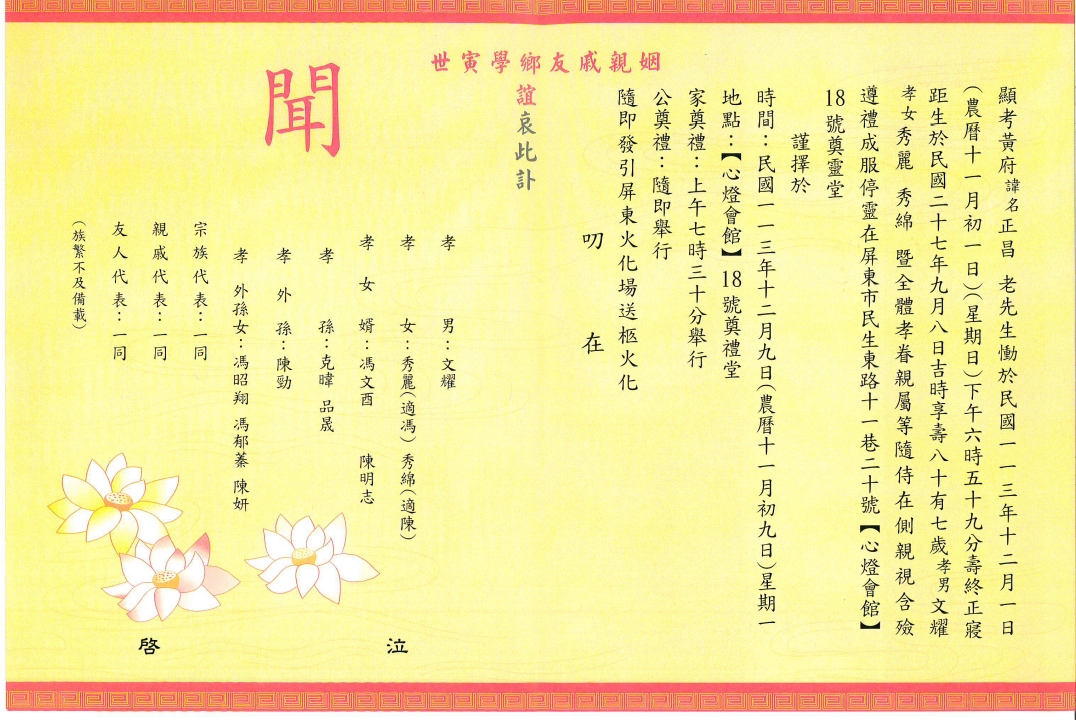 顯考黃府諱名正昌 老先生慟於民國一一三年十二月一日
(農曆十一月初一日)(星期日)下午六時五十九分壽終正寢
距生於民國二十七年九月八日吉時享壽八十有七歲孝男文耀
孝女秀麗 秀綿 暨全體孝眷親屬等隨侍在側親視含殮
遵禮成服停靈在屏東市民生東路十一巷二十號【心燈會館】
18號奠靈堂
謹擇於
時間：民國一一三年十二月九日(農曆十一月初九日)星期一
地點：【心燈會館】18號奠禮堂
家奠禮：上午七時三十分舉行
公奠禮：隨即舉行
隨即發引屏東火化場送柩火化
叨 在
姻親戚友鄉學寅世
誼哀此訃
聞
孝 男：文耀
孝 女：秀麗(適馮) 秀綿(適陳)
孝 女 婿：馮文酉 陳明志
孝 孫：克暐 品晟
孝 外 孫：陳勁
孝 外孫女：馮昭翔 馮郁蓁 陳妍
宗族代表：一同
親戚代表：一同
友人代表：一同
(族繁不及備載)
泣 啓